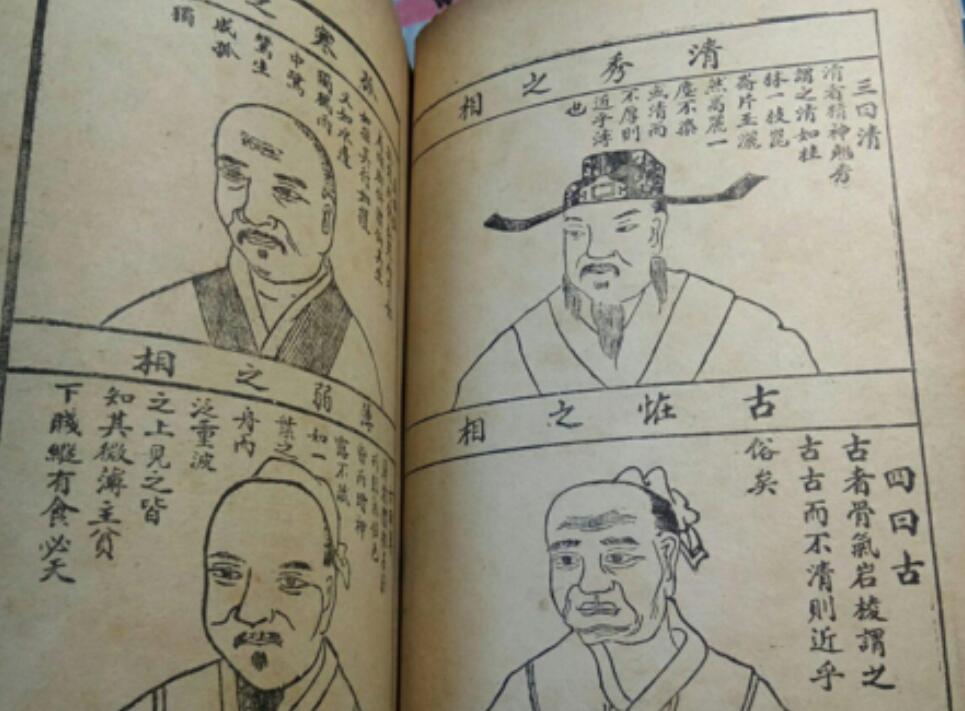 清秀之相
三曰清
清者精神翹秀
謂之清如桂
林一枝崑
崙片玉灑
然高麗一
塵不染
或清而
不厚則
近乎薄
也
古恠之相
四曰古
古者骨氣岩棱謂之
古古而不清則近乎
俗矣
孤寒之
又如水邊
獨鶴雨
中鷺
鷥生
成孤
獨
薄弱之相
昏而暗神
露不藏
如一
葉之
舟而
泛重波
之上見之皆
如其微薄主貧
下賤縱有食必夭